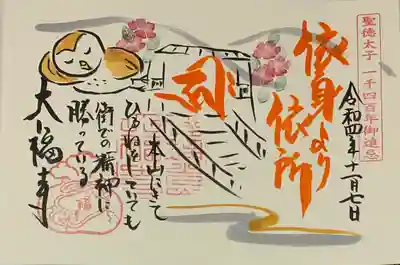 聖徳太子 一千四百年御遠忌
令和四年十一月七日
依身より
依所
本山にきて
ひるねをしていても
街での
勝っている
大福寺